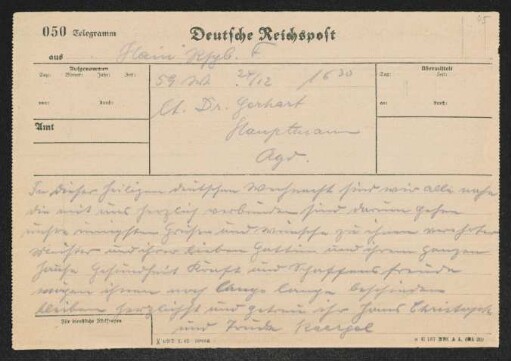 050 Telegramm Deutsche Reichspost
aus Hain Rsgb. F
Aufgenommen
Tag: Monat: Jahr: Zeit:
von: durch:
Amt
59 W. 24/12 1630
Dr. Gerhart
Hauptmann
Agd.
Übermittelt
Tag: Zeit:
an: durch:
In dieser heiligen deutschen Weihnacht sind wir alle nahe
die mit uns herzlich verbunden sind darum gehen
unsre Grüsse und wünsche zu ihnen verehrter
Meister und ihrer lieben Gattin und ihrem ganzen
Hause Gesundheit Kraft und Schaffensfreude
mögen ihnen noch lange lange beschieden
bleiben herzlichst und getreu ihr Hans Christoph
und Trude Kaergel
Für dienstliche Rückfragen